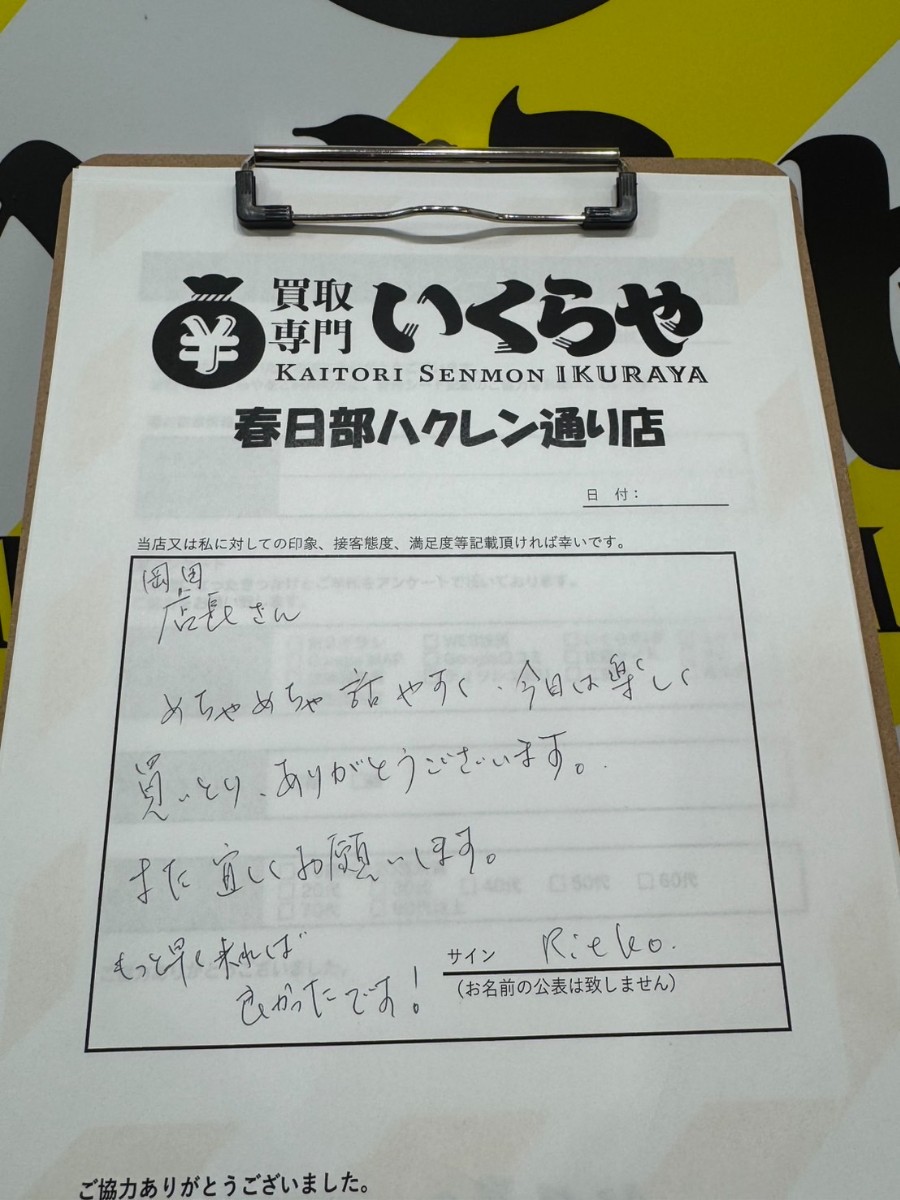 買取
専門
いくらや
KAITORI SENMON IKURAYA
春日部ハクレン通り店
日 付：
当店又は私に対しての印象、接客態度、満足度等記載頂ければ幸いです。
岡田
店長さん
めちゃめちゃ話やすく、今日は楽しく
買いとり、ありがとうございます。
また宜しくお願いします。
もっと早く来れば
良かったです！
サイン Rieko.
（お名前の公表は致しません）
ご協力ありがとうございました。